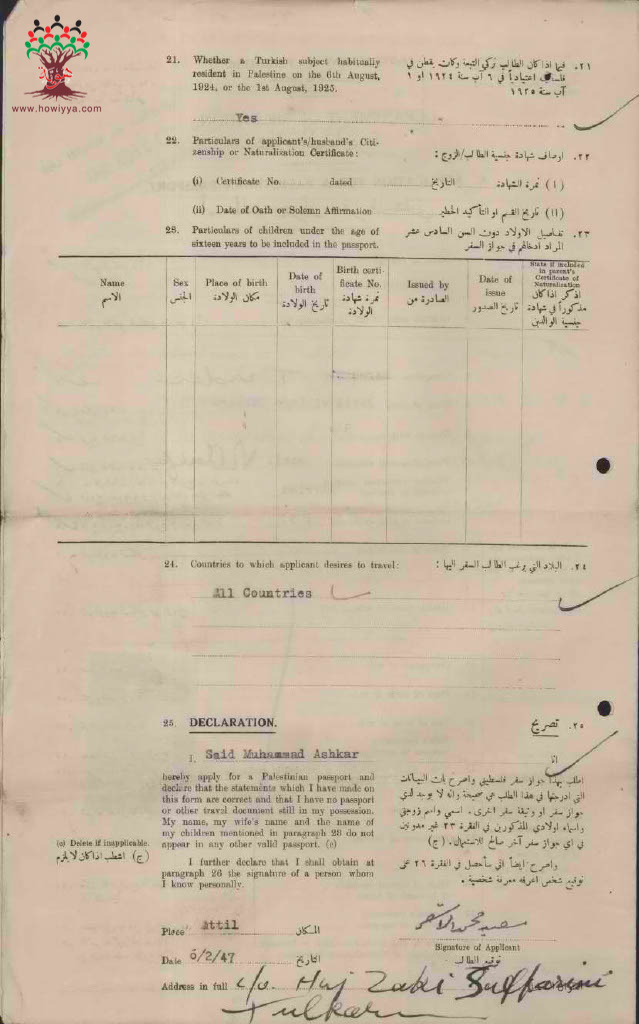 هوية
www.howiyya.com
21. Whether a Turkish subject habitually
resident in Palestine on the 6th August,
1924, or the 1st August, 1925.
Yes
٢١. فيما اذا كان الطالب تركي التبعة وكان يقطن في
فلسطين اعتيادياً في ٦ آب سنة ١٩٢٤ او ١
آب سنة ١٩٢٥
22. Particulars of applicant's/husband's Citi-
zenship or Naturalization Certificate:
٢٢. اوصاف شهادة جنسية الطالب/الزوج:
(i) Certificate No. dated
التاريخ (I) نمرة الشهادة
(ii) Date of Oath or Solemn Affirmation
(II) تاريخ القسم او التأكيد الخطير
28. Particulars of children under the age of
sixteen years to be included in the passport.
٢٣. تفاصيل الاولاد دون السن السادس عشر
المراد ادخالهم في جواز السفر
Name
الاسم
Sex
الجنس
Place of birth
مكان الولادة
Date of
birth
تاريخ الولادة
Birth certi-
ficate No.
نمرة شهادة
الولادة
Issued by
الصادرة من
Date of
issue
تاريخ الصدور
State if included
in parent's
Certificate of
Naturalization
اذكر اذا كان
مذكوراً في شهادة
جنسية الوالدين
24. Countries to which applicant desires to travel:
٢٤. البلاد التي يرغب الطالب السفر اليها:
All Countries
25. DECLARATION.
٢٥. تصريح
I, Said Muhammad Ashkar
انا
hereby apply for a Palestinian passport and
declare that the statements which I have made on
this form are correct and that I have no passport
or other travel document still in my possession.
My name, my wife's name and the name of
my children mentioned in paragraph 28 do not
appear in any other valid passport. (c)
I further declare that I shall obtain at
paragraph 26 the signature of a person whom
I know personally.
اطلب بهذا جواز سفر فلسطيني واصرح بان البيانات
التي ادرجتها في هذا الطلب هي صحيحة وانه لا يوجد لدي
جواز سفر او وثيقة سفر اخرى. اسمي واسم زوجتي
واسماء اولادي المذكورين في الفقرة ٢٣ غير مدونين
في اي جواز سفر آخر صالح للاستعمال. (ج)
واصرح ايضاً اني سأحصل في الفقرة ٢٦ على
توقيع شخص اعرفه معرفة شخصية.
(c) Delete if inapplicable.
(ج) اشطب اذا كان لا يلزم
Place Attil المكان
سعيد محمد الاشقر
Signature of Applicant
توقيع الطالب
Date 6/2/47 التاريخ
Address in full c/o. Haj Zaki Sulfarini
Tulkarm